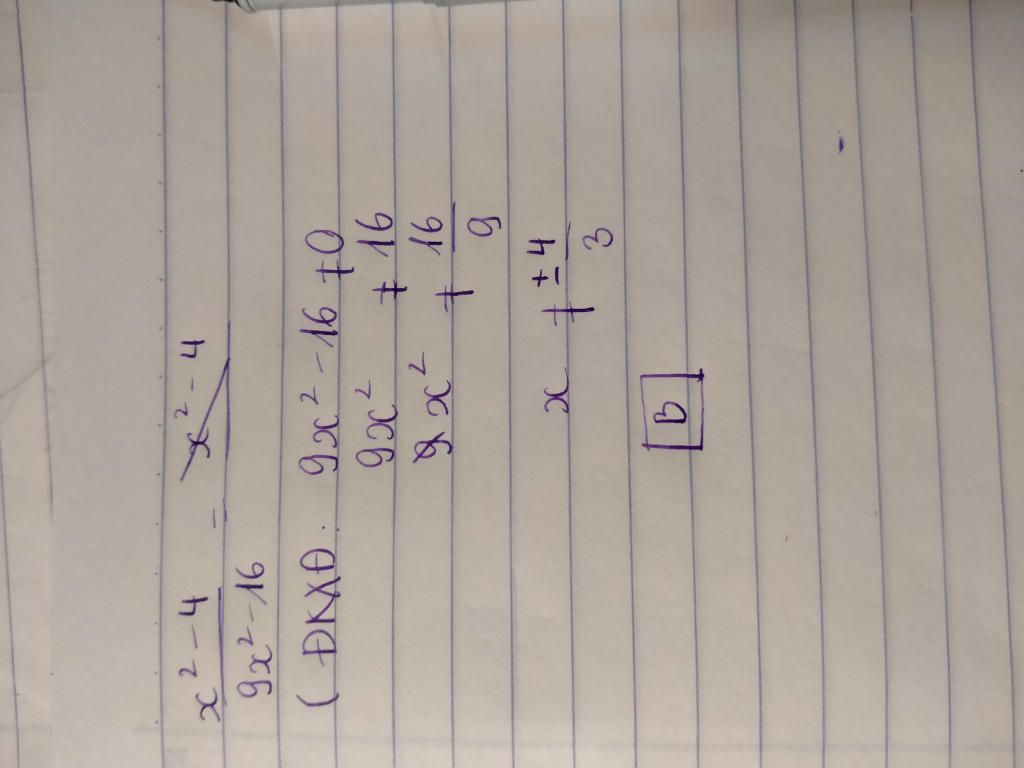 x² - 4 / 9x² - 16 = x² - 4
( ĐKXĐ. 9x² - 16 ≠ 0
9x² ≠ 16
x² ≠ 16/9
x ≠ ± 4/3
B